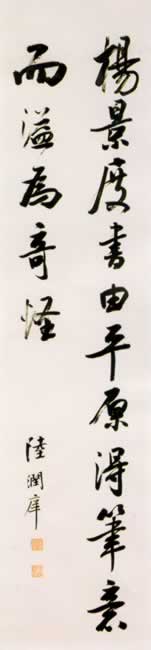 楊景度書由平原得筆意
而溢為奇怪
陸潤庠